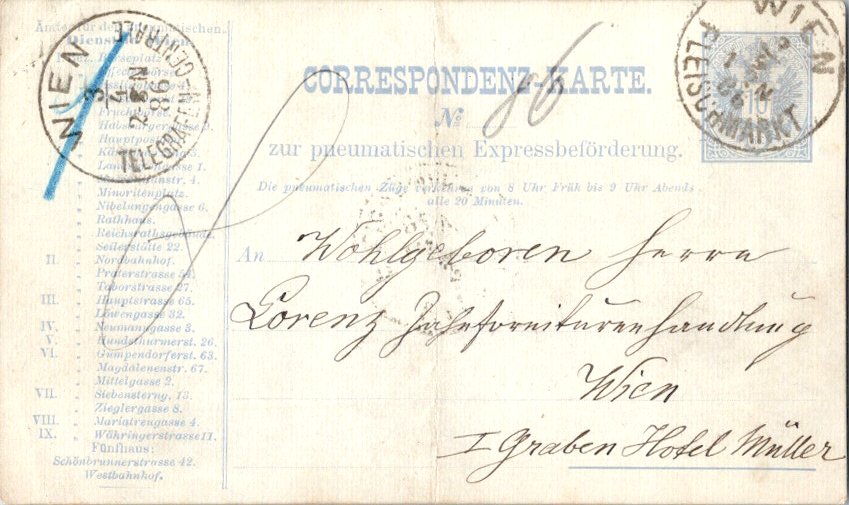 Ämter für den pneumatischen
Dienst in Wien.
Börseplatz
Fruchtbörse.
Habsburgergasse 9.
Hauptpost
Minoritenplatz.
Nibelungengasse 6.
Rathhaus.
Reichsrathsgebäude.
Seilerstätte 22.
II. „ Nordbahnhof.
„ Praterstrasse 54.
„ Taborstrasse 27.
III. „ Hauptstrasse 65.
„ Löwengasse 32.
IV. „ Neumanngasse 3.
V. „ Hundsthurmerst. 26.
VI. „ Gumpendorferst. 63.
„ Magdalenenstr. 67.
„ Mittelgasse 2.
VII. „ Siebensterng. 13.
„ Zieglergasse 8.
VIII. „ Mariatreugasse 4.
IX. „ Währingerstrasse 11.
Fünfhaus:
Schönbrunnerstrasse 42.
Westbahnhof.
WIEN
TELEGRAFEN CENTRALE
WIEN
FLEISCHMARKT
10
CORRESPONDENZ-KARTE.
No
zur pneumatischen Expressbeförderung.
Die pneumatischen Züge verkehren von 8 Uhr Früh bis 9 Uhr Abends
alle 20 Minuten.
An Wohlgeboren Herrn
Lorenz Zahnfourniturenhandlung
Wien
I Graben Hotel Müller